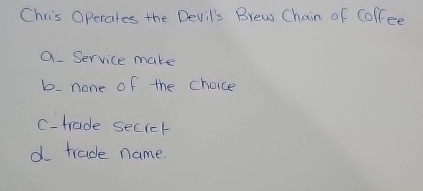 Chris Operates the Devil's Brew Chain of Coffee
a- Service make
b- none of the choice
c- trade secret
d- trade name.